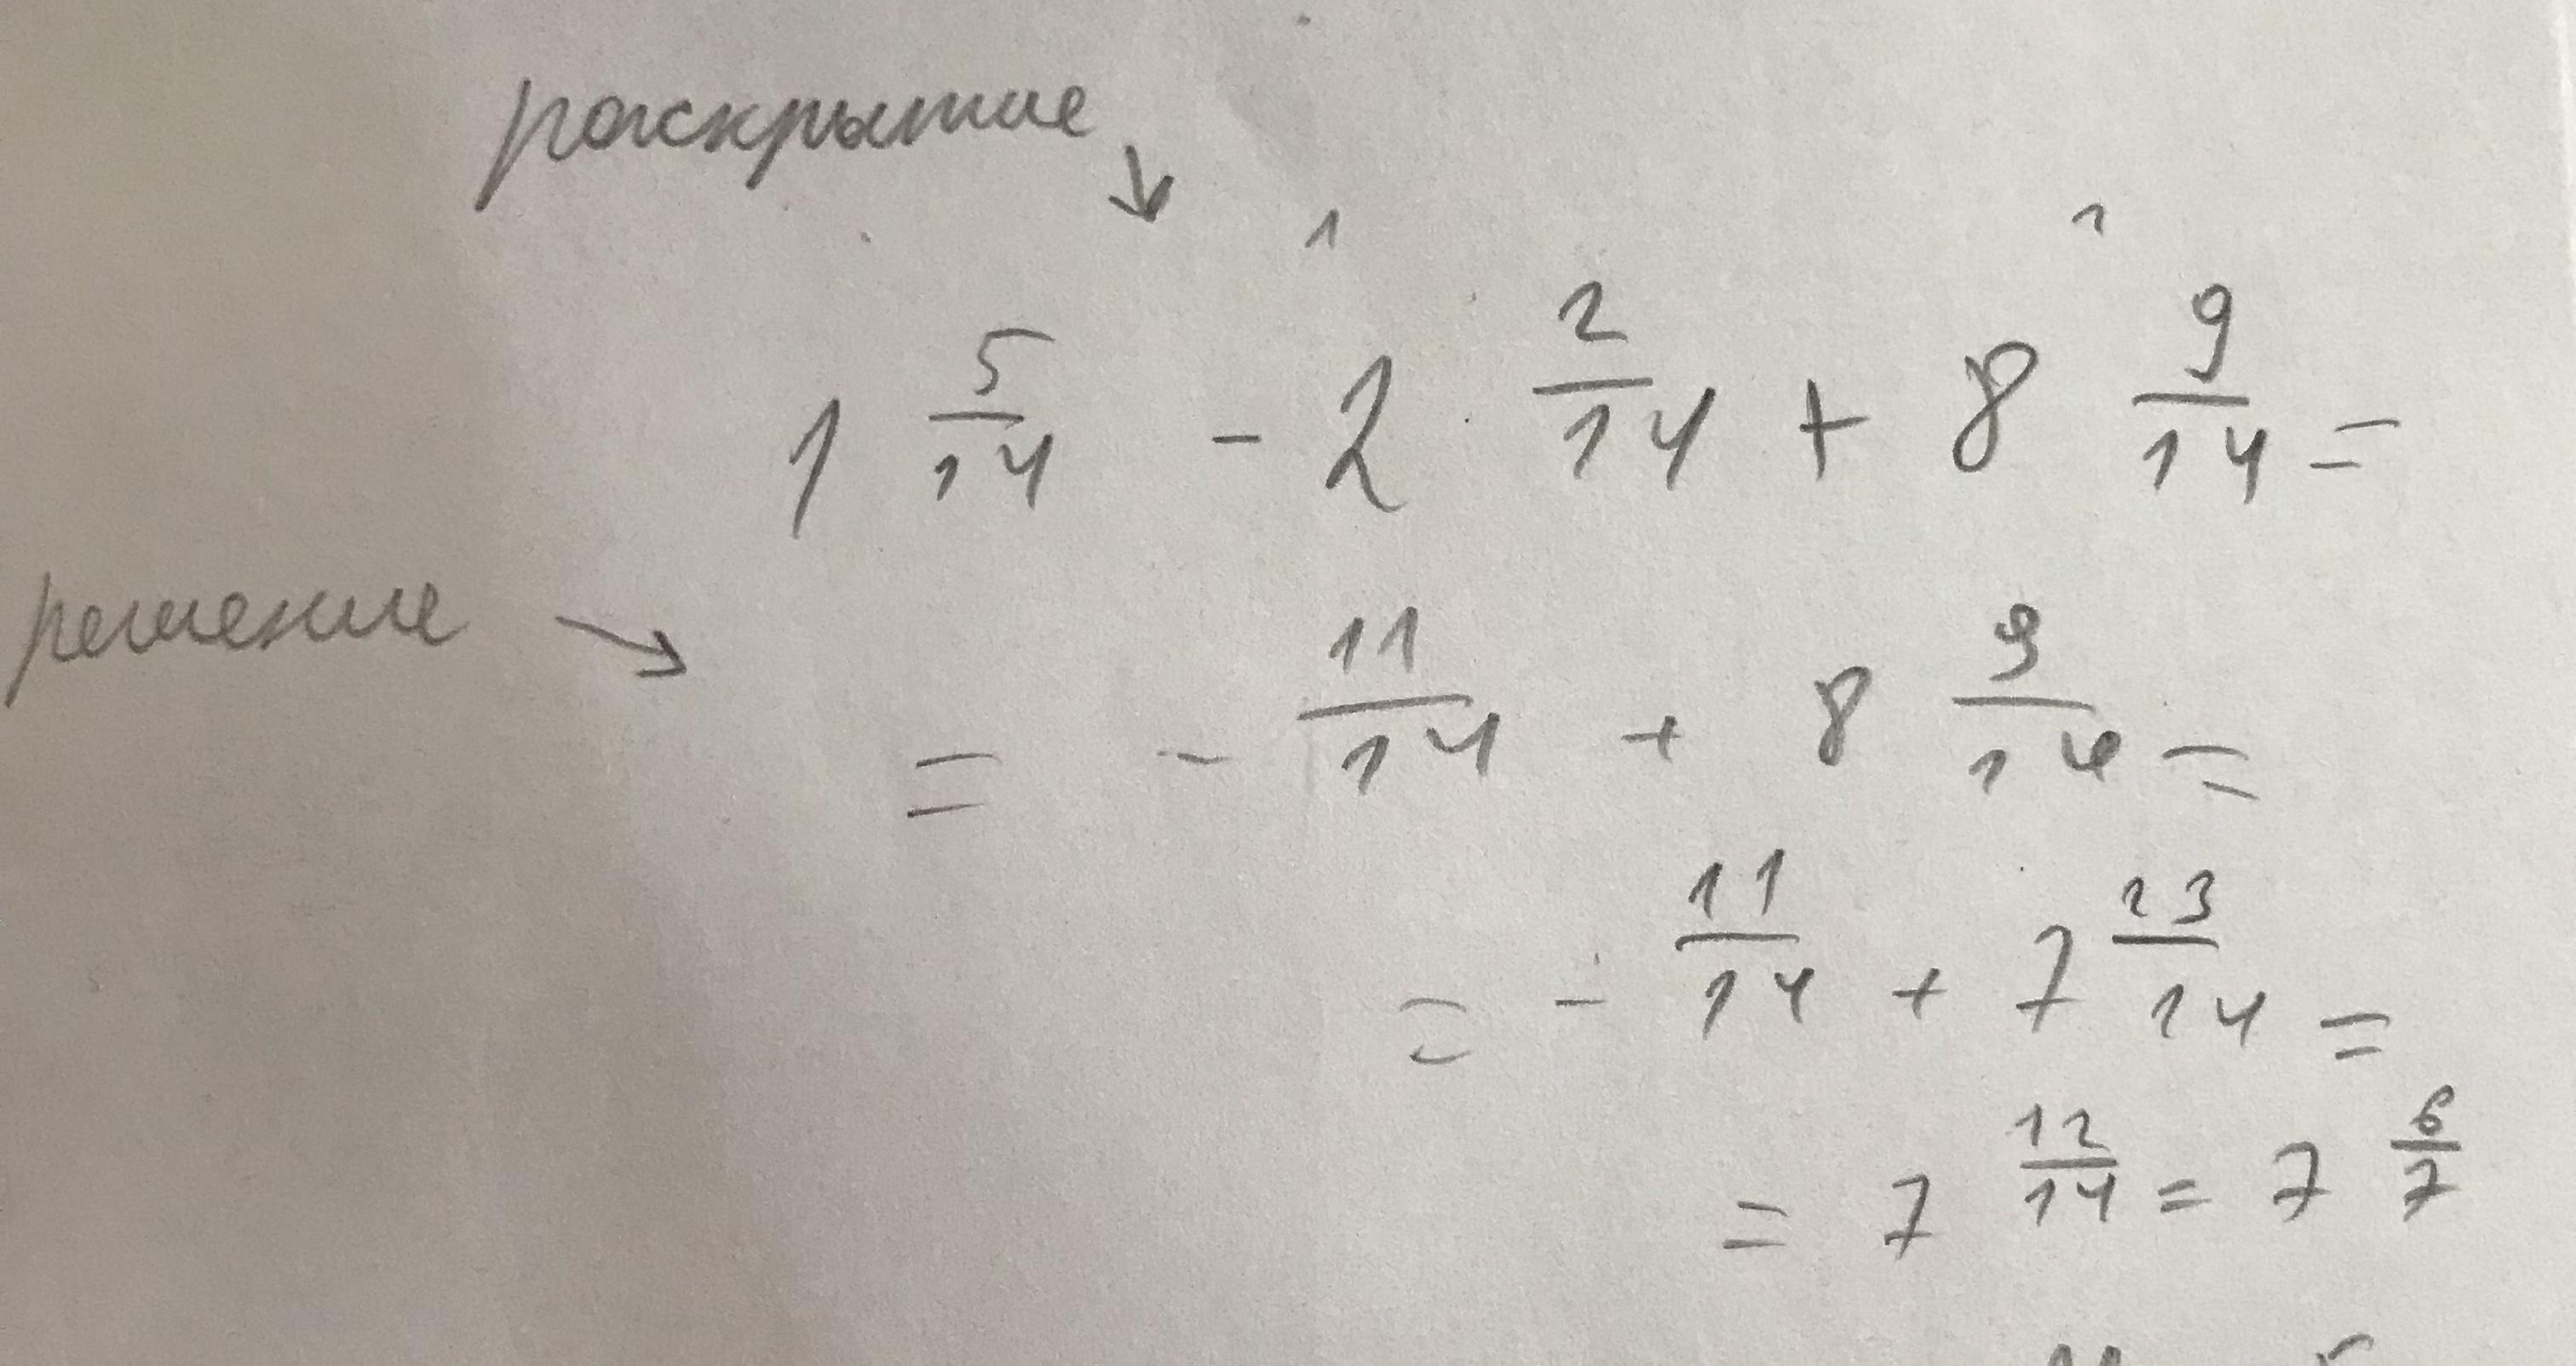 раскрытие ↓
1 5/14 - 2 2/14 + 8 9/14 =
решение →
= - 11/14 + 8 9/14 =
= - 11/14 + 7 23/14 =
= 7 12/14 = 7 6/7